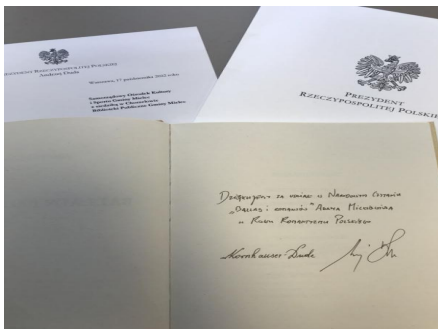 PREZYDENT RZECZYPOSPOLITEJ POLSKIEJ
Andrzej Duda
Warszawa, 17 października 2022 roku
Samorządowy Ośrodek Kultury
i Sportu Gminy Mielec
z siedzibą w Chorzelowie
Biblioteka Publiczna Gminy Mielec
PREZYDENT
RZECZYPOSPOLITEJ POLSKIE
Dziękujemy za udział w Narodowym Czytaniu
„Ballad i romansów” Adama Mickiewicza
w Roku Romantyzmu Polskiego
Kornhauser-Duda